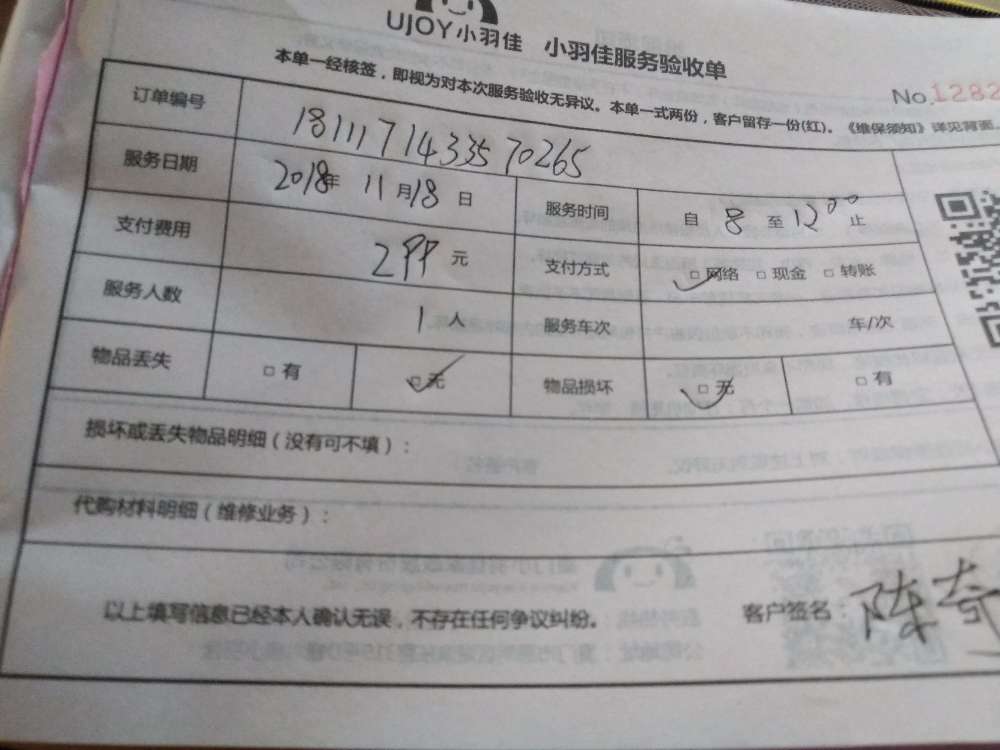 UJOY小羽佳 小羽佳服务验收单
No.1282
本单一经核签，即视为对本次服务验收无异议。本单一式两份，客户留存一份(红)。《维保须知》详见背面
订单编号 1811171433570265
服务日期 2018年 11月18日 服务时间 自 8 至 12 00 止
支付费用 299 元 支付方式 □网络 □现金 □转账
服务人数 1人 服务车次 车/次
物品丢失 □有 □无 物品损坏 □无 □有
损坏或丢失物品明细（没有可不填）：
代购材料明细（维修业务）：
以上填写信息已经本人确认无误，不存在任何争议纠纷。 客户签名 陈奇